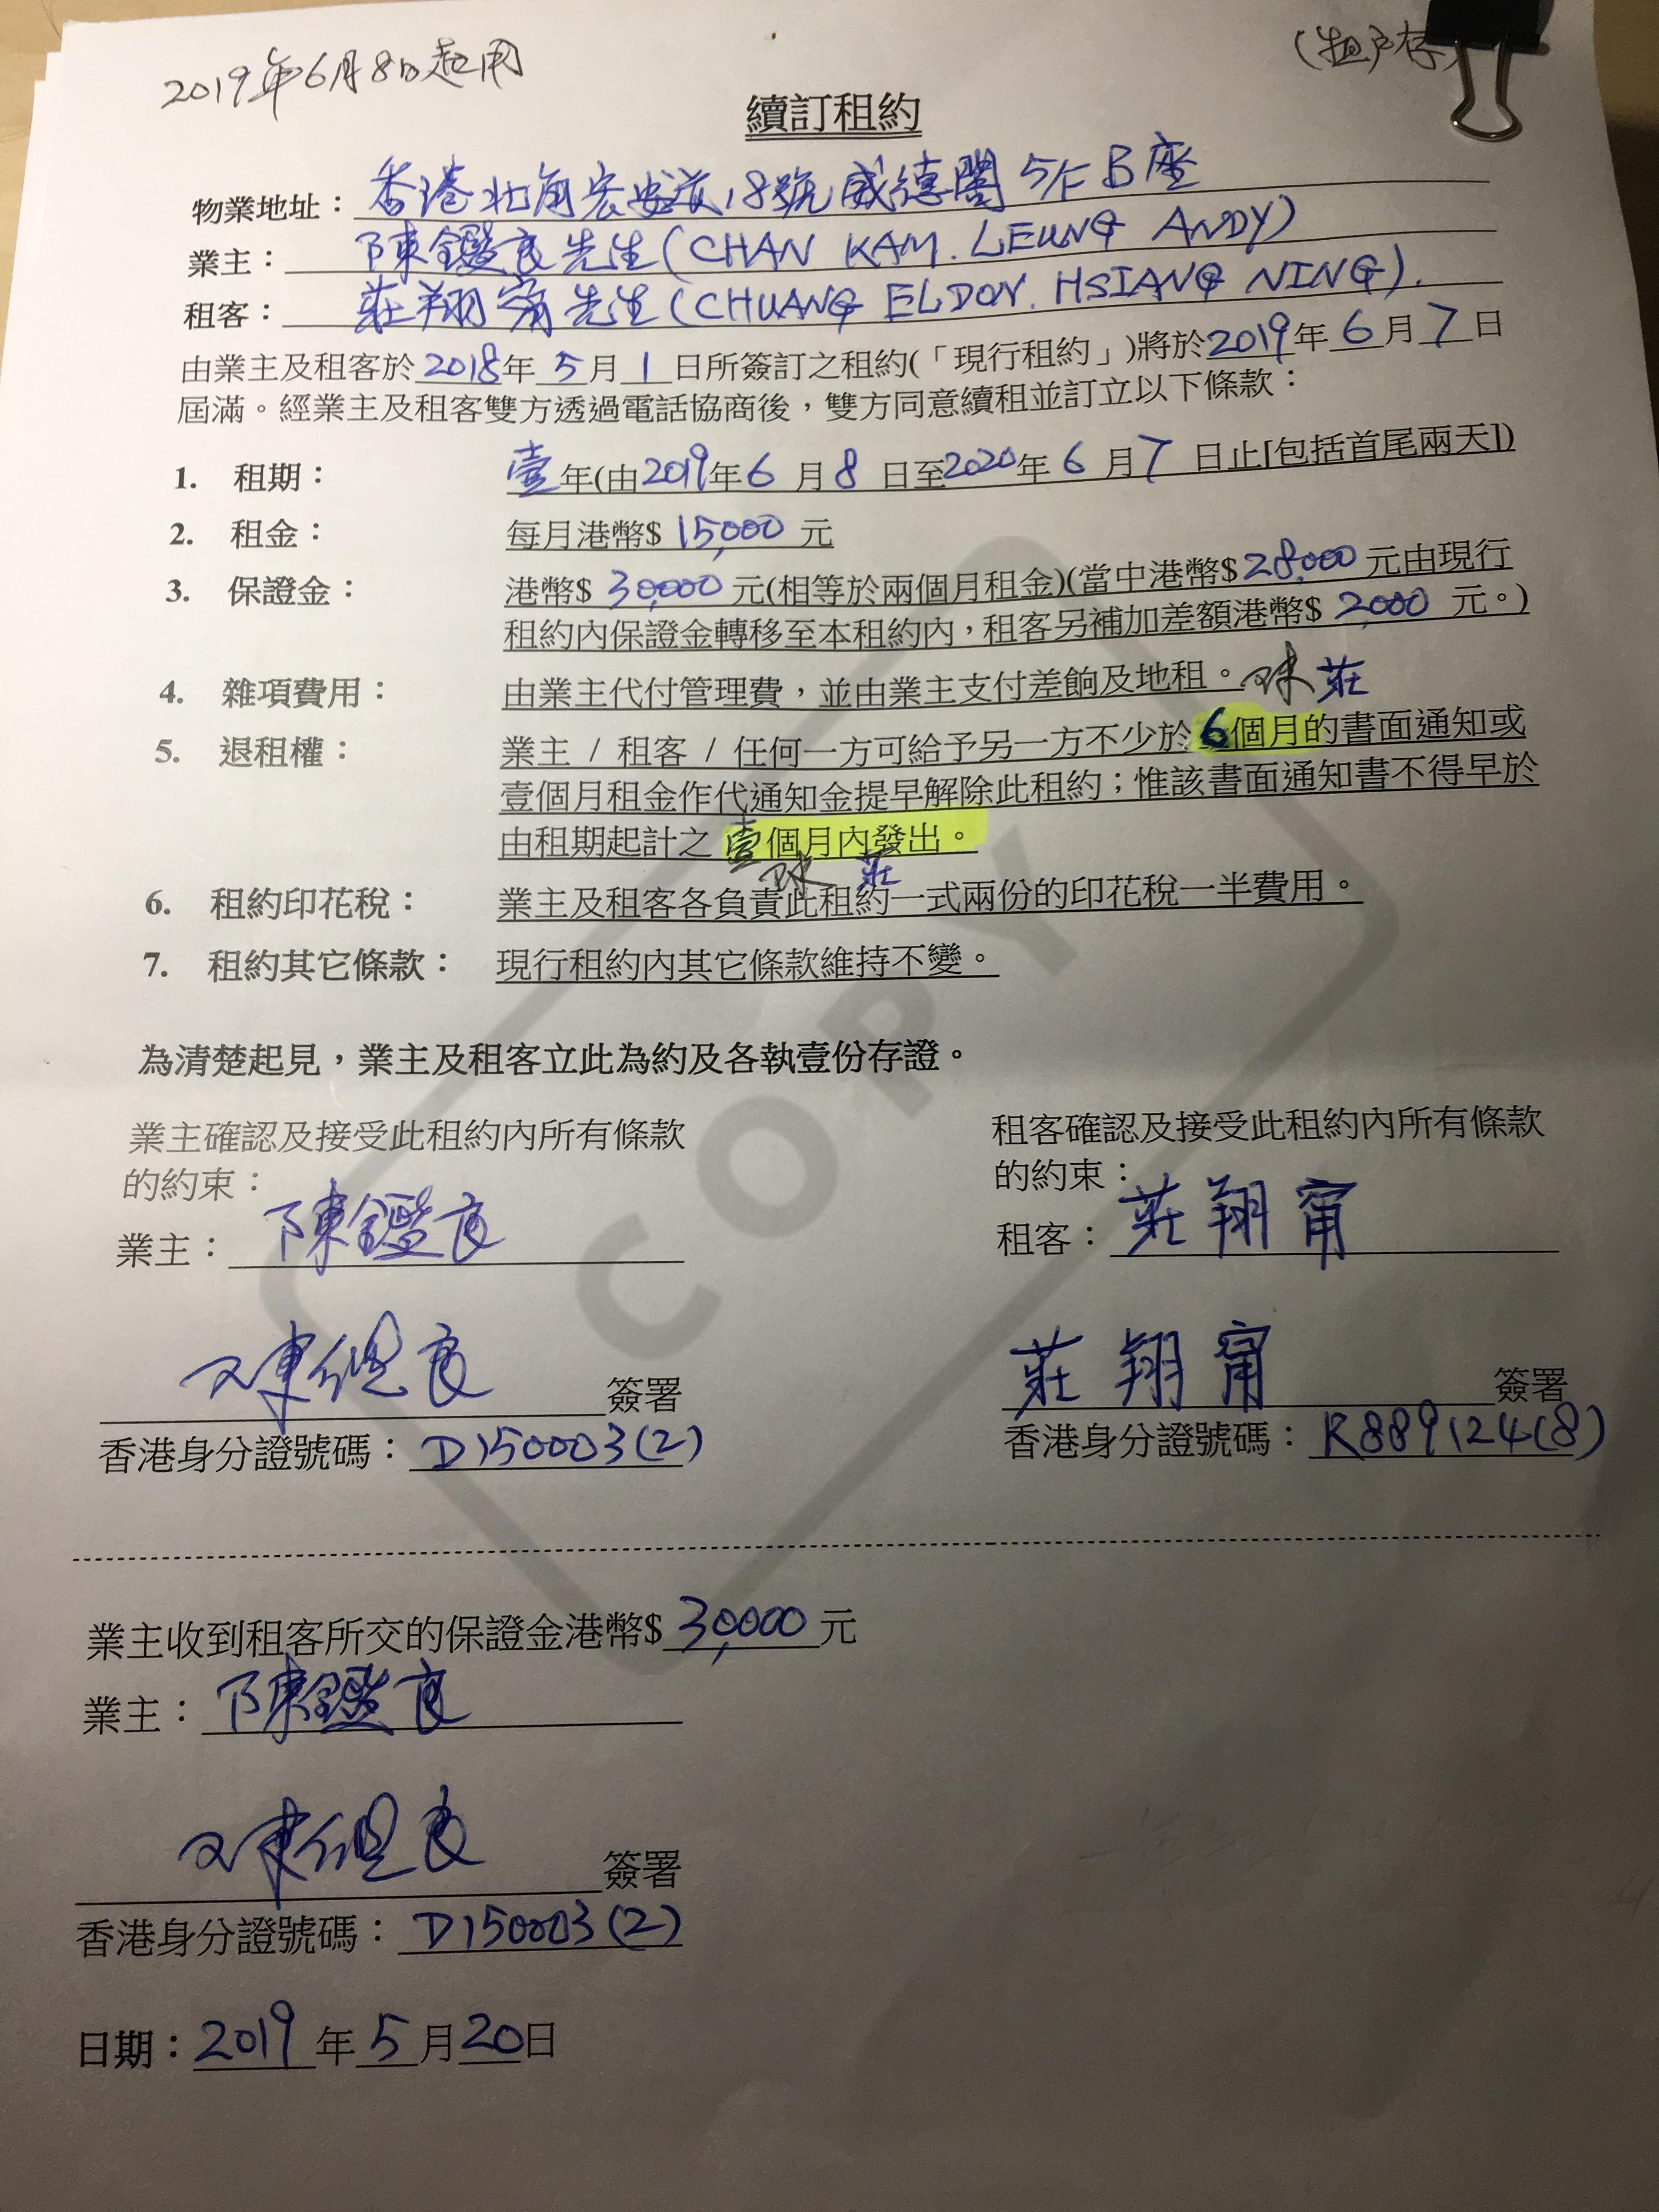 2019年6月8日起用
(租戶存)
續訂租約
物業地址：香港北角宏安道18號威德閣5/F B座
業主：陳鑑良先生(CHAN KAM.LEUNG ANDY)
租客：莊翔甯先生(CHUANG ELDON.HSIANG NING).
由業主及租客於2018年5月1日所簽訂之租約(「現行租約」)將於2019年6月7日
屆滿。經業主及租客雙方透過電話協商後，雙方同意續租並訂立以下條款：
1. 租期： 壹年(由2019年6月8日至2020年6月7日止[包括首尾兩天])
2. 租金： 每月港幣$ 15,000 元
3. 保證金： 港幣$ 30,000 元(相等於兩個月租金)(當中港幣$28,000 元由現行
租約內保證金轉移至本租約內，租客另補加差額港幣$ 2,000 元。)
4. 雜項費用： 由業主代付管理費，並由業主支付差餉及地租。陳 莊
5. 退租權： 業主 / 租客 / 任何一方可給予另一方不少於6個月的書面通知或
壹個月租金作代通知金提早解除此租約；惟該書面通知書不得早於
由租期起計之壹個月內發出。
陳 莊
6. 租約印花稅： 業主及租客各負責此租約一式兩份的印花稅一半費用。
7. 租約其它條款： 現行租約內其它條款維持不變。
COPY
為清楚起見，業主及租客立此為約及各執壹份存證。
業主確認及接受此租約內所有條款
的約束：
業主：陳鑑良
陳鑑良 簽署
香港身分證號碼：D150003(2)
租客確認及接受此租約內所有條款
的約束：
租客：莊翔甯
莊翔甯 簽署
香港身分證號碼：R889124(8)
業主收到租客所交的保證金港幣$30,000元
業主：陳鑑良
陳鑑良 簽署
香港身分證號碼：D150003(2)
日期：2019年5月20日